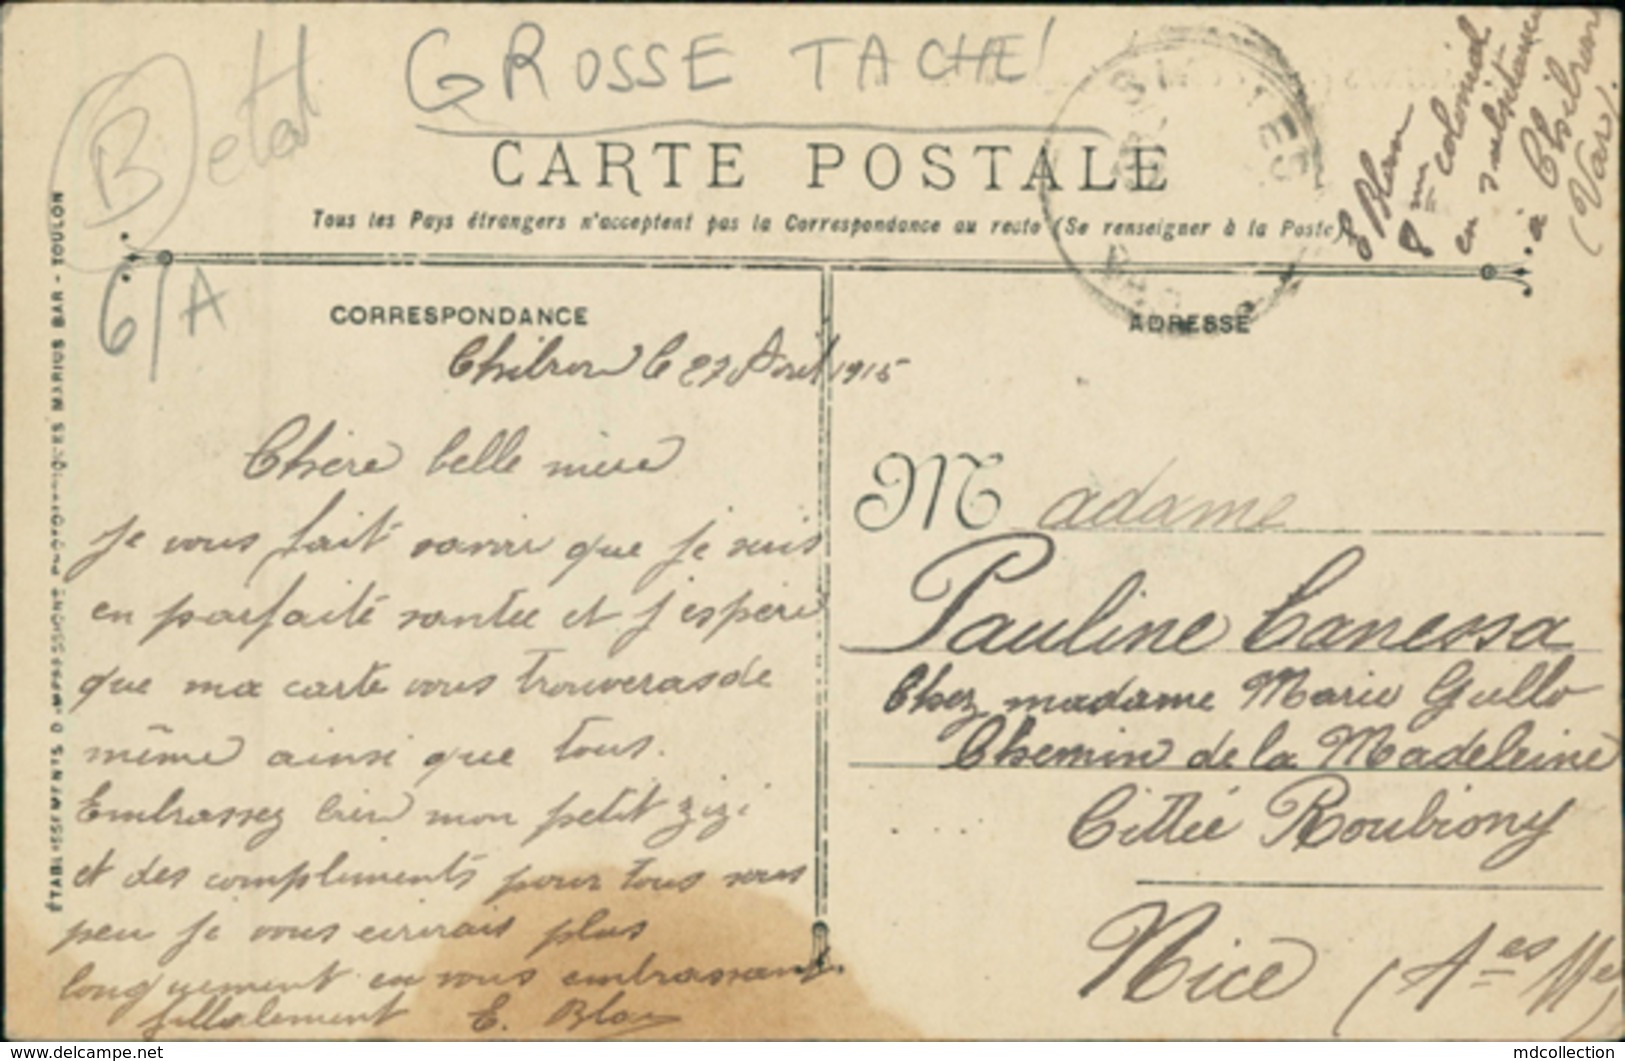 GROSSE TACHE!
B etat
6/A
CARTE POSTALE
Tous les Pays étrangers n'acceptent pas la Correspondance au recto (Se renseigner à la Poste)
E Blan
8me colonial
en subsistance
à Chibron
(Var)
CORRESPONDANCE
ADRESSE
Chibron le 27 Avril 1915
Chère belle mère
Je vous fait savoir que je suis
en parfaite santée et j'espère
que ma carte vous trouveras de
même ainsi que tous.
Embrassez bien mon petit zizi
et des compliments pour tous sous
peu je vous écrirais plus
longuement en vous embrassant.
fillalement E. Blan
Madame
Pauline Canessa
Chez madame Marie Gullo
Chemin de la Madeleine
Cittée Roubiony
Nice (Aes Mes
ÉTABLISSEMENTS D'IMPRESSIONS PHOTOTYPIQUES MARIUS BAR - TOULON
https://www.delcampe.net/en_US/collectibles/
mdcollection